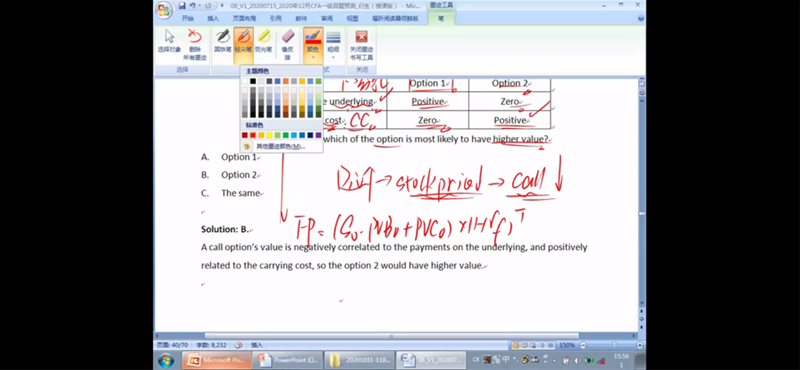 08_V1_20200715_2020年12月CFA一级百题预测_衍生（授课版）
墨迹工具
开始 插入 页面布局 引用 邮件 审阅 视图 福昕阅读器领鲜版 笔
选择对象 删除所有墨迹 圆珠笔 毡尖笔 荧光笔 橡皮擦 颜色 粗细 关闭墨迹书写工具
选择 关闭
主题颜色
标准色
其他墨迹颜色(M)...
Option 1 Option 2
underlying Positive Zero
cost CC Zero Positive
which of the option is most likely to have higher value?
A. Option 1
B. Option 2
C. The same
Div↑ → stock price↓ → call ↓
FP = (S0 - PVB0 + PVC0) × (1+rf)^T
Solution: B.
A call option's value is negatively correlated to the payments on the underlying, and positively
related to the carrying cost, so the option 2 would have higher value.
页面: 40/70 字数: 8,232 插入 150%
Microsoft Po... PowerPoint 20201031-118... 15:56